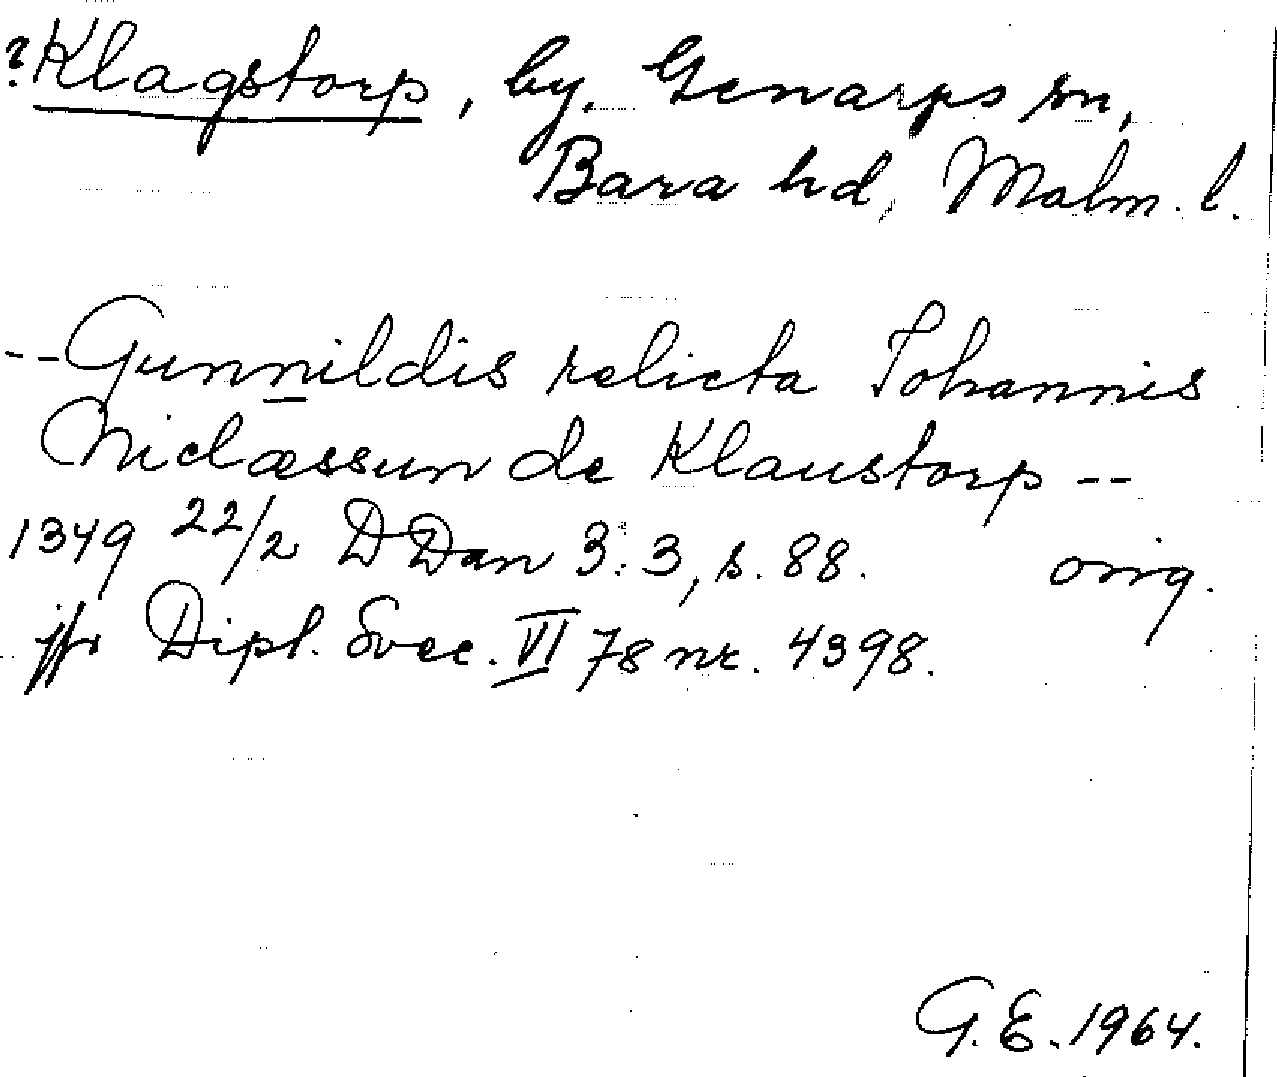 ?Klagstorp, by, Genarps sn,
Bara hd, Malm. l.
--Gunnildis relicta Johannis
Niclæssun de Klaustorp --
1349 22/2 DDan 3:3, s. 88. orig.
jfr Dipl. Svec. VI 78 nr. 4398.
G.E. 1964.